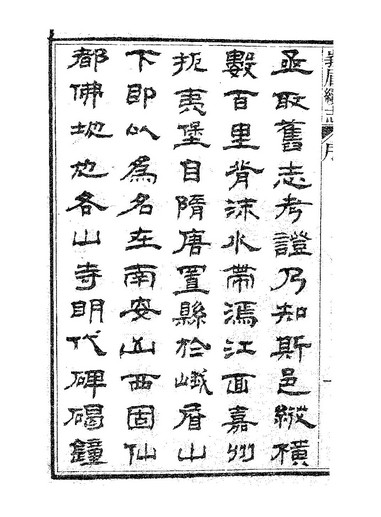 亟取舊志考證乃知斯邑縱橫
數百里背沫水帶濿江面嘉州
扼夷堡自隋唐置縣於峨眉山
下即以為名在南安山西固仙
都佛地也各山寺明代碑碣鐘